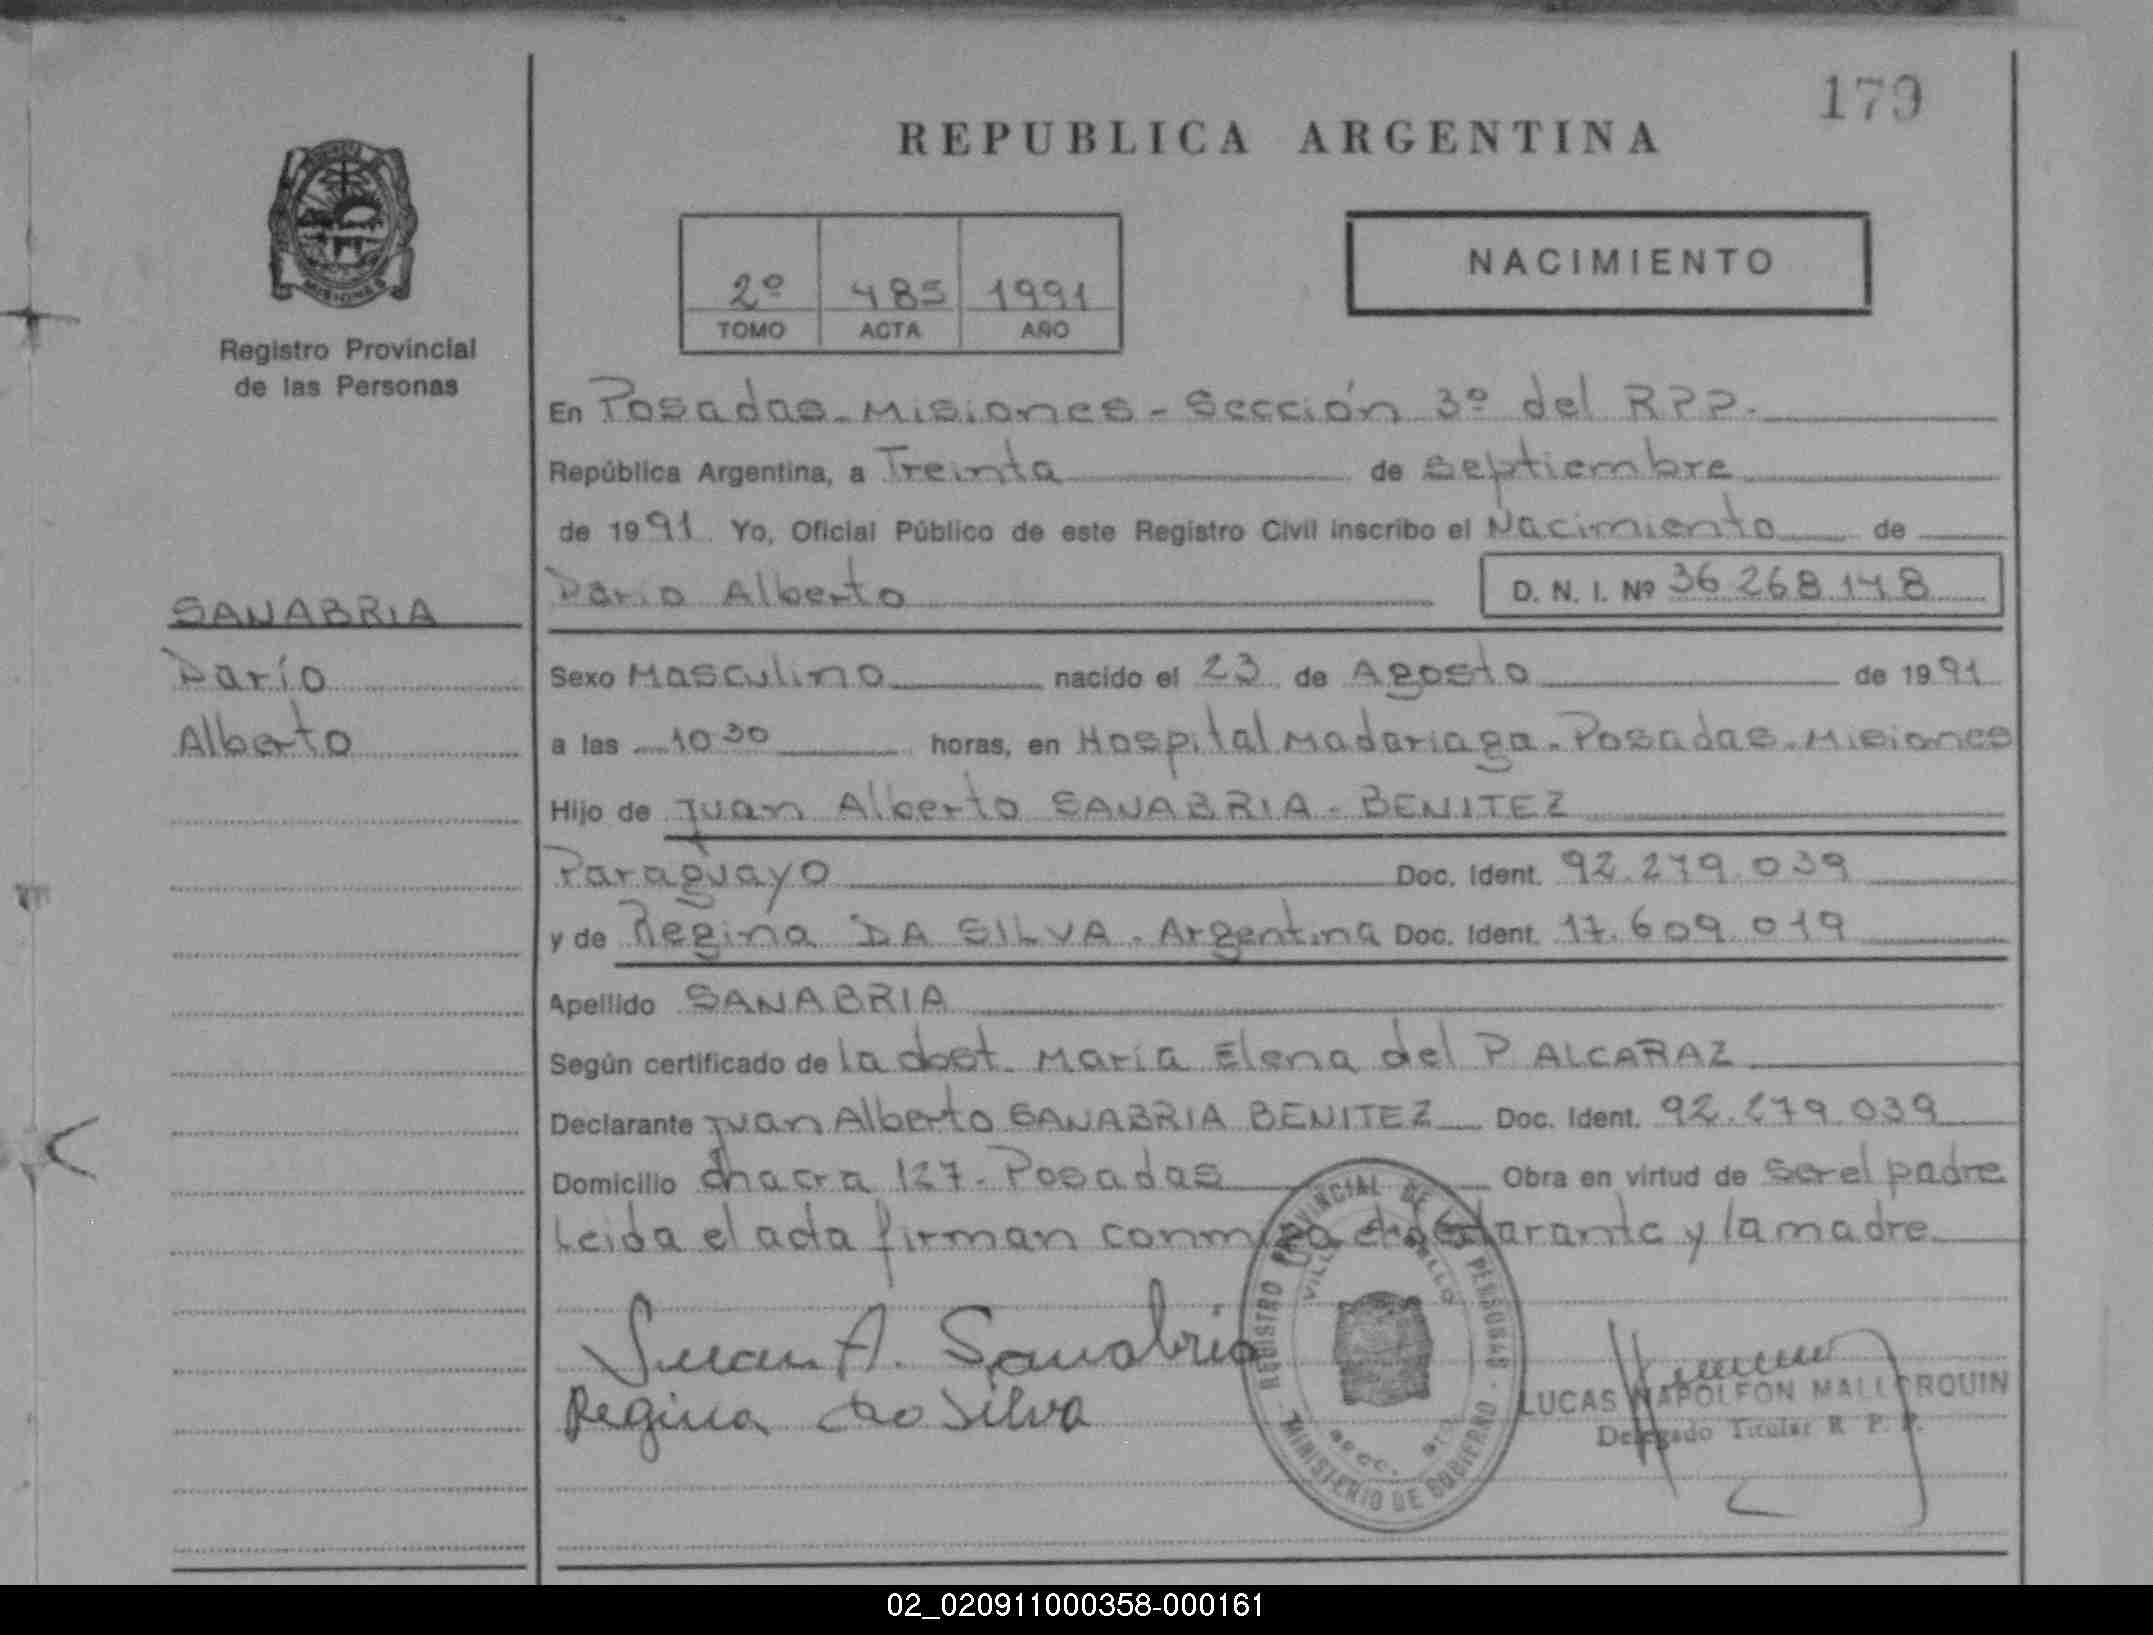 179
REPUBLICA ARGENTINA
NACIMIENTO
2º 485 1991
TOMO ACTA AÑO
MISIONES
Registro Provincial
de las Personas
En Posadas - Misiones - Sección 3º del RPP.
República Argentina, a Treinta de Septiembre
de 1991 Yo, Oficial Público de este Registro Civil inscribo el Nacimiento de
Dario Alberto D. N. I. Nº 36.268.148
SANABRIA
Darío
Alberto
Sexo Masculino nacido el 23 de Agosto de 1991
a las 10 30 horas, en Hospital Madariaga - Posadas - Misiones
Hijo de Juan Alberto SANABRIA - BENITEZ
Paraguayo Doc. Ident. 92.279.039
y de Regina DA SILVA - Argentina Doc. Ident. 17.609.019
Apellido SANABRIA
Según certificado de la obst. María Elena del P ALCARAZ
Declarante Juan Alberto SANABRIA BENITEZ Doc. Ident. 92.279.039
Domicilio chacra 127 - Posadas Obra en virtud de ser el padre
Leida el acta firman conmigo el declarante y la madre
Juan A. Sanabria
Regina da Silva
REGISTRO PROVINCIAL DE LAS PERSONAS
MINISTERIO DE GOBIERNO
LUCAS NAPOLEON MALLORQUIN
Delegado Titular R. P. P.
02_020911000358-000161